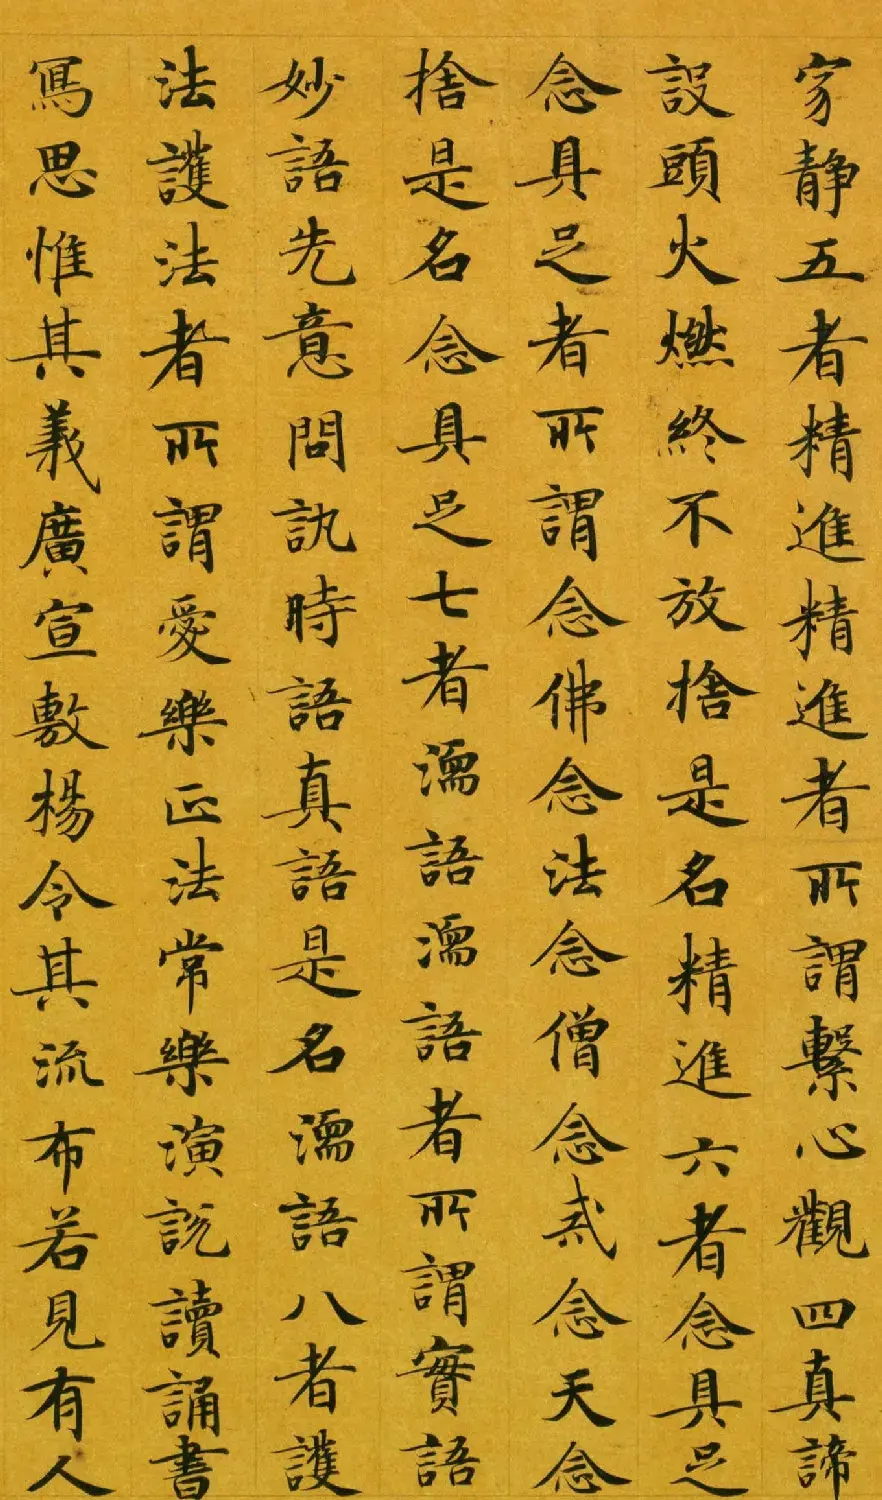 寂静五者精進精進者所謂繫心觀四真諦
設頭火燃終不放捨是名精進六者念具足
念具足者所謂念佛念法念僧念戒念天念
捨是名念具足七者濡語濡語者所謂實語
妙語先意問訊時語真語是名濡語八者護
法護法者所謂愛樂正法常樂演説讀誦書
寫思惟其義廣宣敷楊令其流布若見有人